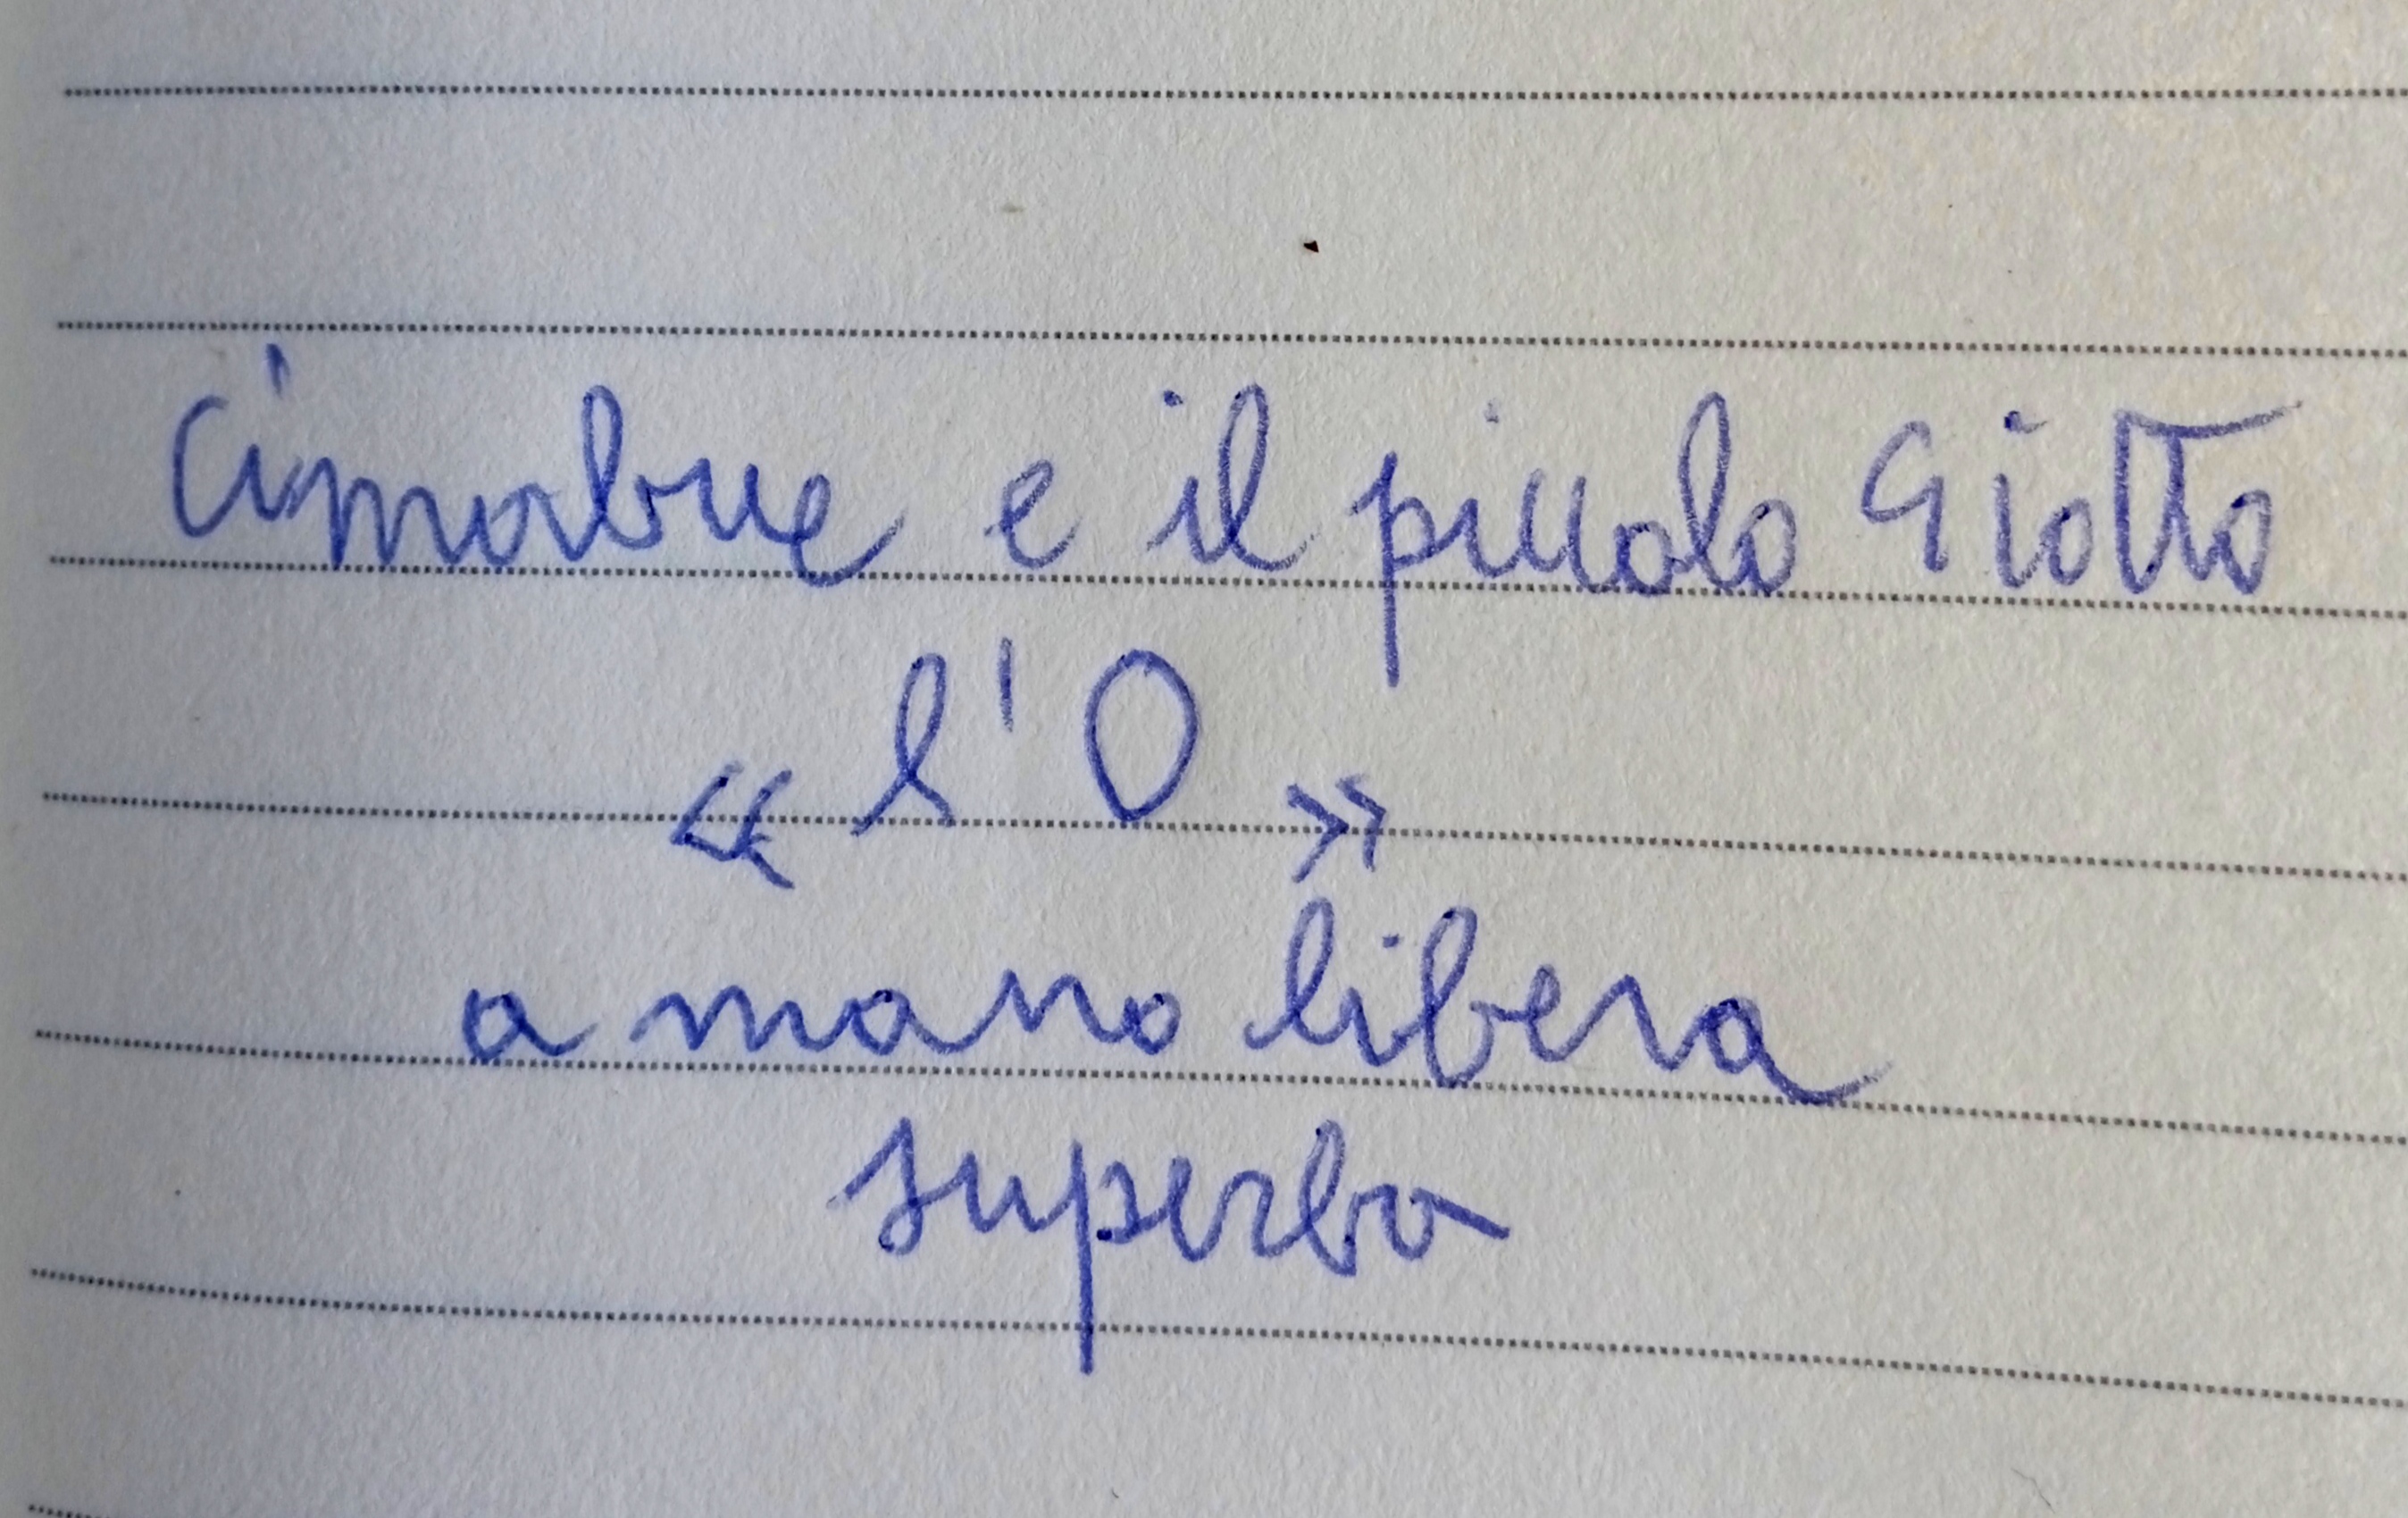 Cimabue e il piccolo Giotto
« l'O »
a mano libera
superbo